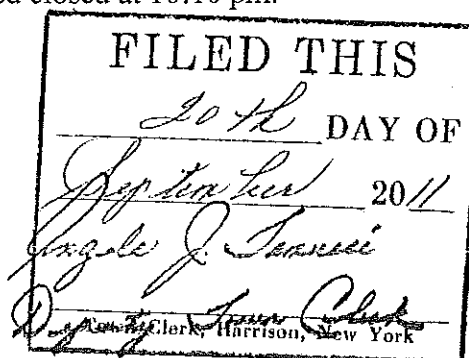 ed closed at 10:10 pm.
FILED THIS
20th DAY OF
September 2011
Angelo J.
Deputy Town Clerk
Town Clerk, Harrison, New York